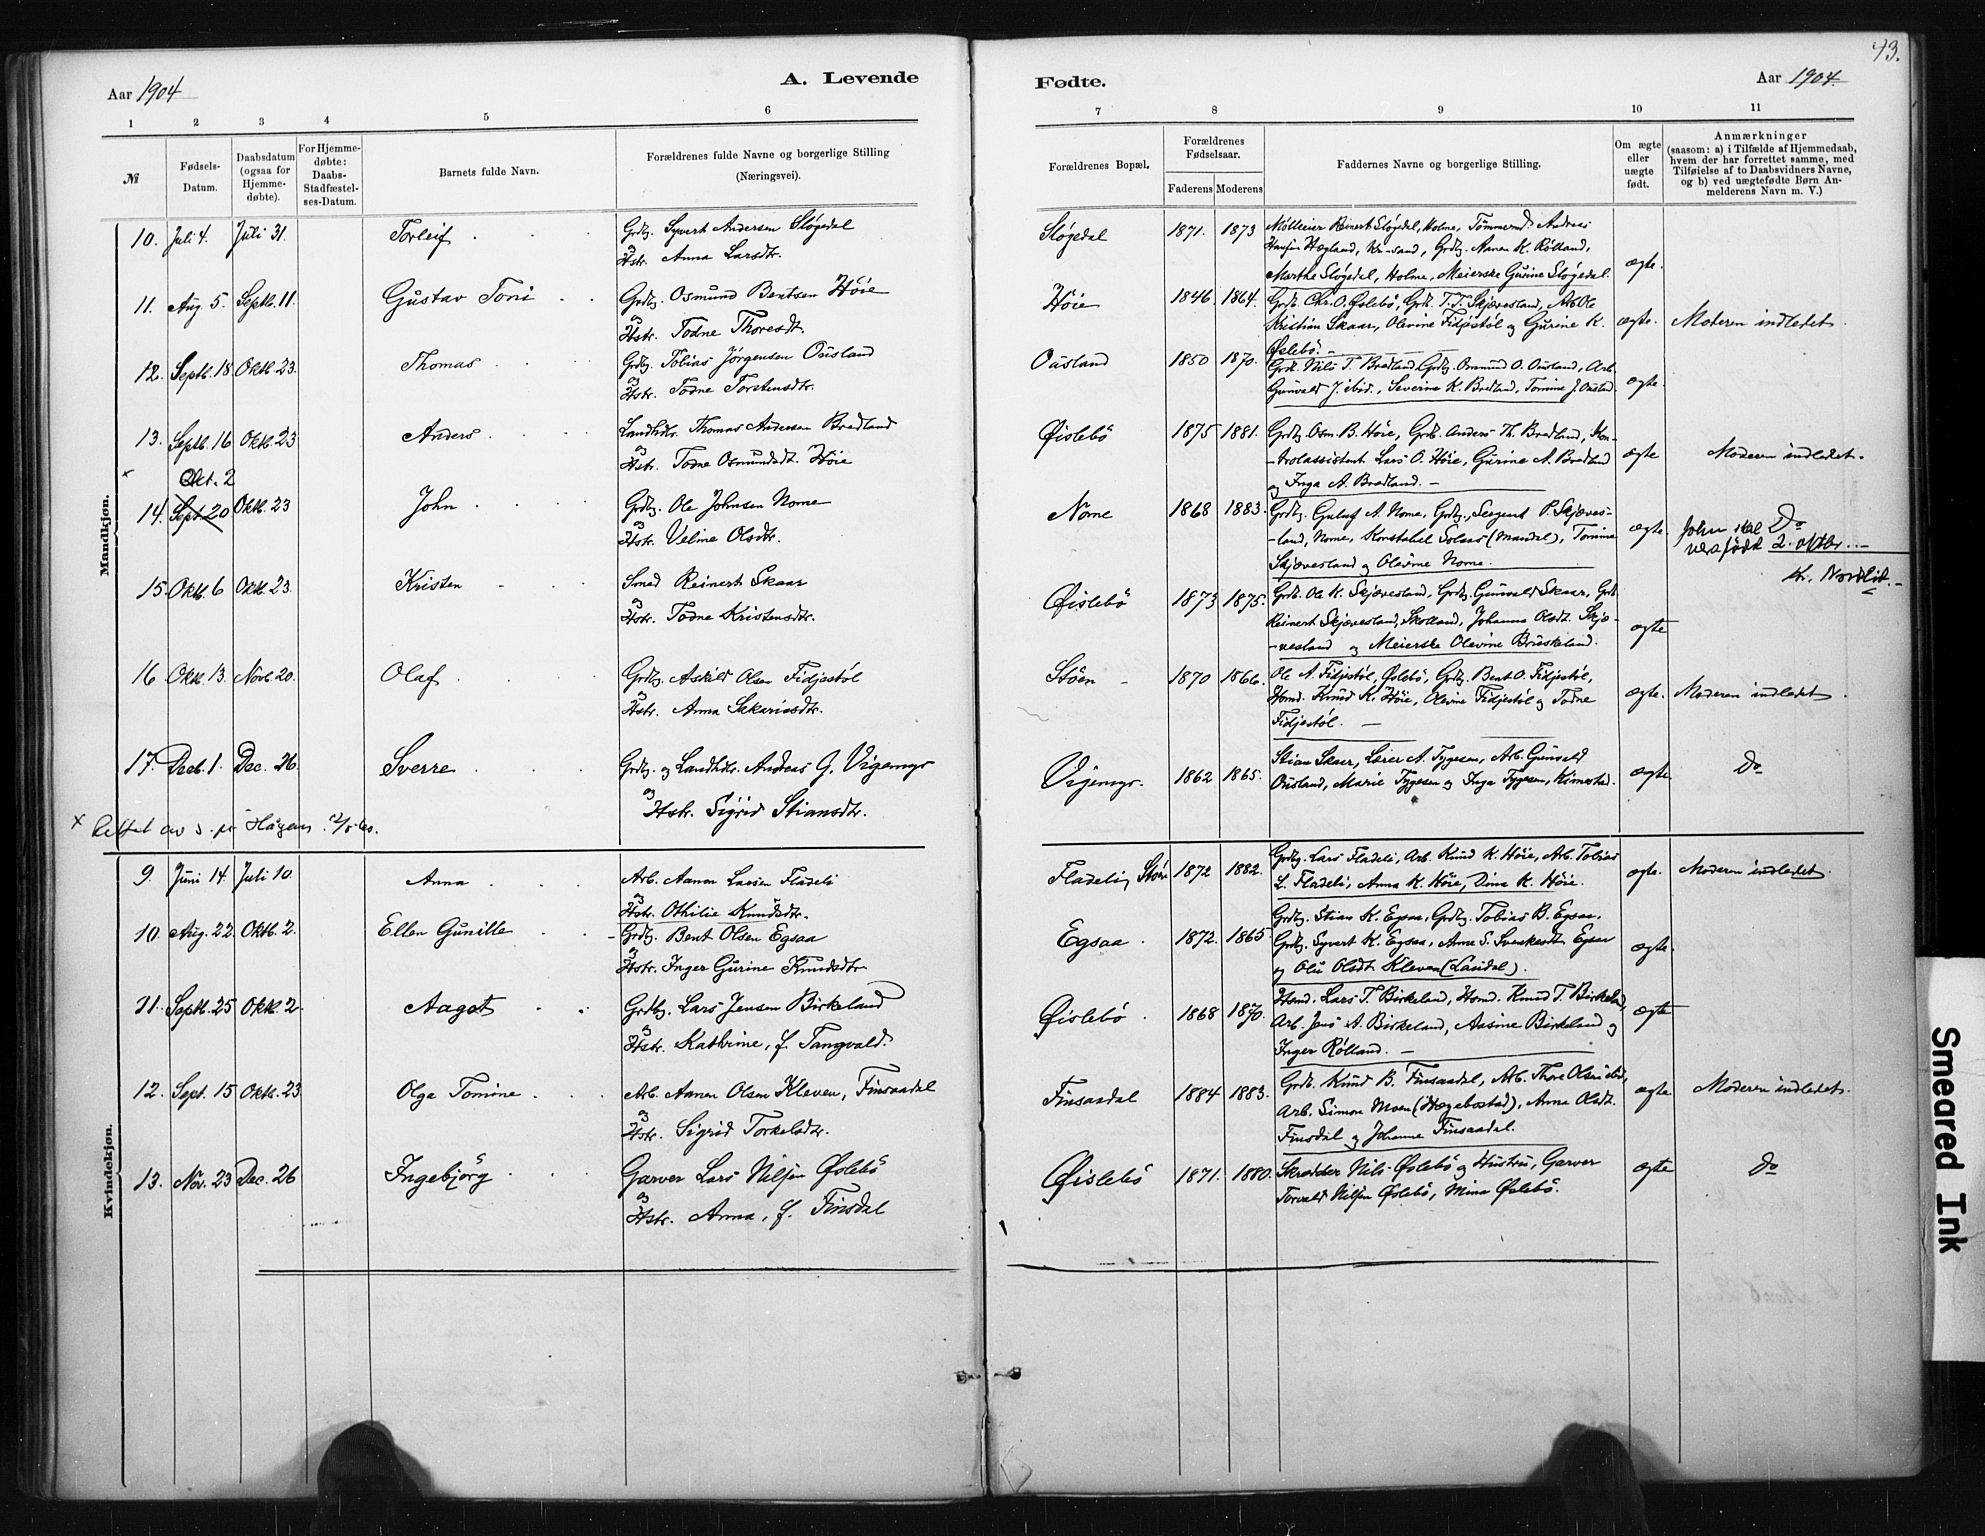 43.
Aar 1904
A. Levende
Fødte.
Aar 1904
1 2 3 4 5 6 7 8 9 10 11
№
Fødsels-
Datum.
Daabsdatum
(ogsaa for
Hjemme-
døbte).
For Hjemme-
døbte:
Daabs-
Stadfæstel-
ses-Datum.
Barnets fulde Navn.
Forældrenes fulde Navne og borgerlige Stilling
(Næringsvei).
Forældrenes Bopæl.
Forældrenes
Fødselsaar.
Faderens Moderens
Faddernes Navne og borgerlige Stilling.
Om ægte
eller
uægte
født.
Anmærkninger
(saasom: a) i Tilfælde af Hjemmedaab,
hvem der har forrettet samme, med
Tilføielse af to Daabsvidners Navne,
og b) ved uægtefødte Børn An-
melderens Navn m. V.)
Mandkjøn.
10. Juli 4. Juli 31. Torleif Grdbg. Syvert Andersen Sløgedal
Hstr. Anna Larsdtr.
Sløgedal 1871. 1873 Møllerier Reinert Sløgedal, Holme, Tømmermd. Andreas
Hansen Hægland, Kr.sand, Grdbg. Aanen K. Rølland,
Marthe Sløgedal, Holme, Meierske Gurine Sløgedal. ægte.
11. Aug. 5. Septb. 11. Gustav Toni Grdbg. Osmund Bentsen Høie
og
Hstr. Todne Thoresdt.
Høie 1846. 1864. Grdb. Chr. O. Øslebø, Grdb. T. T. Skjævesland, Arb. Ole
Kristian Skaar, Olevine Fidjestøl og Gurine K.
Øslebø. ægte. Moderen indledet.
12. Septb. 18 Oktb. 23. Thomas Grdbg. Tobias Jørgensen Ousland
og
Hstr. Todne Torstensdtr.
Ousland 1850 1870. Grdb. Nils T. Bredland, Grdbg. Osmund O. Ousland, Arb.
Gunvald J. ibid., Severine K. Bredland, Tomine J. Ousland. ægte.
13. Septb. 16 Oktb. 23 Anders Landhdlr. Thomas Andersen Bredland
og
Hstr. Todne Osmundsdt. Høie
Øislebö 1875 1881. Grdbg. Osm. B. Høie, Grdb. Anders Th. Bredland, Kon-
trolassistent Lars O. Høie, Gurine A. Bredland
og Inga A. Bredland. ægte Moderen indledet.
x Okt. 2
14. Sept. 20 Oktb. 23 John Grdbg. Ole Johnsen Nome
og
Hstr. Velme Olsdtr.
Nome 1868 1883. Grdbg. Guluf A. Nome, Grdbg., Sergent P. Skjæves-
land, Nome, Konstabel Solaas (Mandal), Tomine
Skjævesland og Olevine Nome. ægte. Do
John skal
vera født 2. oktbr.
Kr. Nordlid.
15. Oktb. 6 Oktb. 23. Kristen Smed Reinert Skaar
og
Hstr. Todne Kristensdtr.
Øislebö 1873 1875. Grdb. Ole K. Skjævesland, Grdbg. Gunvald Skaar, Grdb.
Reinert Skjævesland, Skolland, Johanna Olsdt. Skjæ-
vesland og Meierske Olevine Brüskeland. ægte
16 Oktb. 13. Novb. 20. Olaf Grdbg. Askild Olsen Fidjestøl
Hstr. Anna Sakariasdtr.
Støen 1870 1866. Ole A. Fidjestøl, Øslebø, Grdbg. Bent O. Fidjestøl,
Hsmd. Knud K. Høie, Olevine Fidjestøl og Todne
Fidjestøl. ægte. Moderen indledet
17. Decb. 1. Dec. 26. Sverre Grdbg. og Landhdlr. Andreas G. Vigemyr
og
Hstr. Sigrid Stiansdtr.
Vigemyr. 1862 1865. Stian Skaar, Lærer A. Tygesen, Arb. Gunvald
Ousland, Marie Tygesen og Inga Tygesen, Kimestad. ægte Do
x Rettet av s. pr. Hågens. 2/5-60.
Kvindekjøn.
9. Juni 14. Juli 10. Anna Arb. Aanen Larsen Fladeli
og
Hstr. Othilie Knudsdtr.
Fladeli, Støen 1872 1882. Grdbg. Lars Fladeli, Arb. Knud K. Høie, Arb. Tobias
L. Fladeli, Anna K. Høie, Dina K. Høie. ægte. Moderen indledet.
10. Aug. 22. Oktb. 2. Ellen Gunille Grdbg. Bent Olsen Egsaa
og
Hstr. Inger Gurine Knudsdtr.
Egsaa. 1872. 1865. Grdbg. Stian K. Egsaa, Grdbg. Tobias B. Egsaa,
Grdbg. Syvert K. Egsaa, Anne S. Svenkesdt. Egsaa
og Oli Olsdt. Kleven (Laudal). ægte.
11. Septb. 25 Oktb. 2. Aagot Grdbg. Lars Jensen Birkeland
og
Hstr. Kathrine, f. Tangvald.
Øislebö. 1868 1870. Hsmd. Lars T. Birkeland, Hsmd. Knud T. Birkeland,
Arb. Jens A. Birkeland, Aasine Birkeland og
Inger Rølland. ægte
12. Sept. 15 Oktb. 23. Olga Tomine Arb. Aanen Olsen Kleven, Finsaadal
og
Hstr. Sigrid Torkelsdtr.
Finsaadal 1884 1883. Grdb. Knud B. Finsaadal, Arb. Thore Olsen ibid.,
Arb. Simon Moen (Hægebostad), Anna Olsdt.
Finsdal og Johanne Finsaadal. ægte Moderen indledet.
13. Nov. 23 Dec. 26 Ingebjörg Garver Lars Nilsen Øslebö
og
Hstr. Anna, f. Finsdal
Øislebö 1871. 1880. Skrædder Nils Øslebö og Hustru, Garver
Torvald Nilsen Øslebö, Mina Øslebö. ægte Do
Smeared Ink